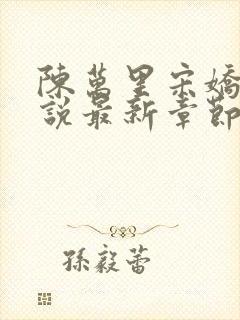 陳萬里宋嬌
說最新章節
孫毅蕾